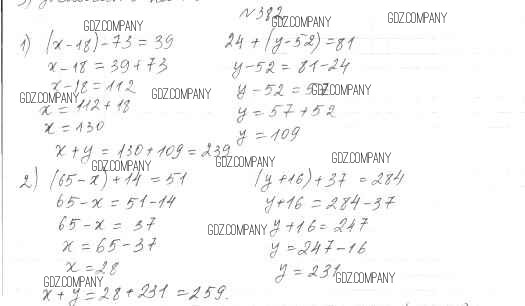 №382
1) (x-18)-73=39
x-18=39+73
x-18=112
x=112+18
x=130
24+(y-52)=81
y-52=81-24
y-52=57
y=57+52
y=109
x+y=130+109=239
2) (65-x)+14=51
65-x=51-14
65-x=37
x=65-37
x=28
(y+16)+37=284
y+16=284-37
y+16=247
y=247-16
y=231
x+y=28+231=259.
GDZ.COMPANY
GDZ.COMPANY
GDZ.COMPANY
GDZ.COMPANY
GDZ.COMPANY
GDZ.COMPANY
GDZ.COMPANY
GDZ.COMPANY
GDZ.COMPANY
GDZ.COMPANY
GDZ.COMPANY
GDZ.COMPANY